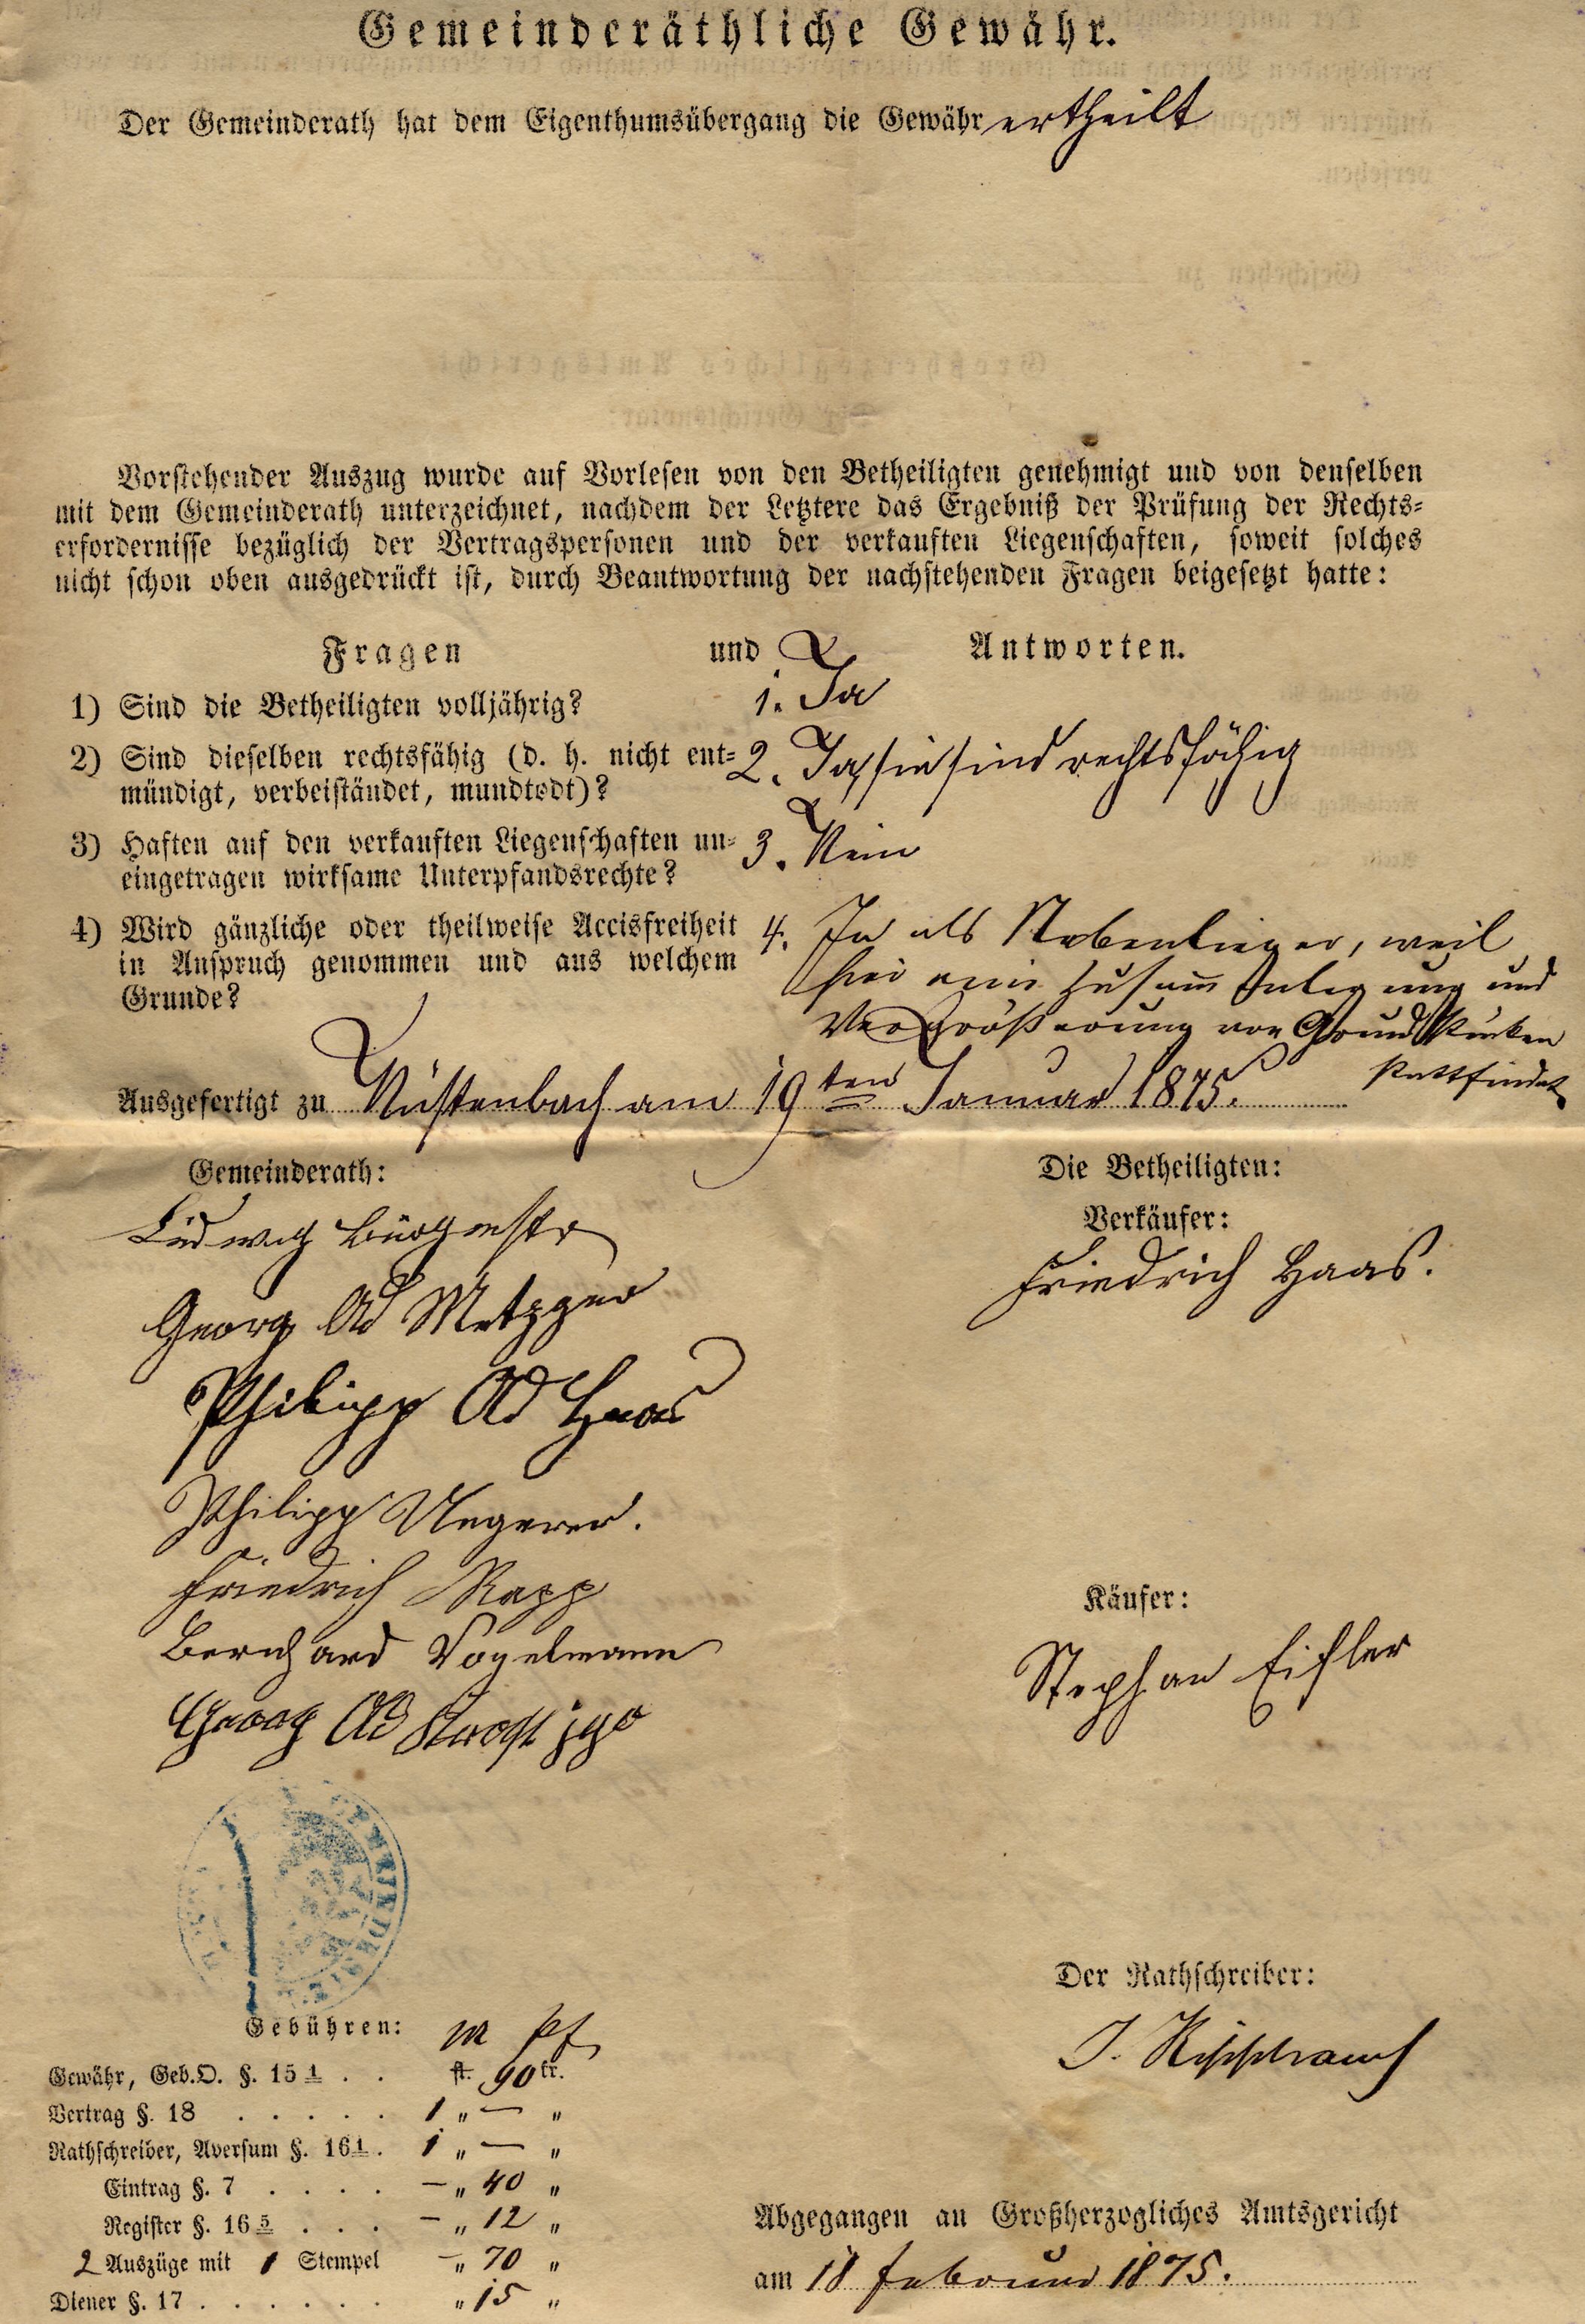 Gemeinderäthliche Gewähr.
Der Gemeinderath hat dem Eigenthumsübergang die Gewähr ertheilt
Vorstehender Auszug wurde auf Vorlesen von den Betheiligten genehmigt und von denselben
mit dem Gemeinderath unterzeichnet, nachdem der Letztere das Ergebniß der Prüfung der Rechts-
erfordernisse bezüglich der Vertragspersonen und der verkauften Liegenschaften, soweit solches
nicht schon oben ausgedrückt ist, durch Beantwortung der nachstehenden Fragen beigesetzt hatte:
Fragen und Antworten.
1) Sind die Betheiligten volljährig? 1. Ja
2) Sind dieselben rechtsfähig (d. h. nicht ent- 2. Ja, sie sind rechtsfähig
mündigt, verbeiständet, mundtodt)?
3) Haften auf den verkauften Liegenschaften un- 3. Nein
eingetragen wirksame Unterpfandsrechte?
4) Wird gänzliche oder theilweise Accisfreiheit 4. Ja als Nebenlieger, weil
in Anspruch genommen und aus welchem hier eine Zusammenlegung und
Grunde? Vergrößerung von Grundstücken
stattfindet.
Ausgefertigt zu Nüstenbach am 19ten Januar 1875.
Gemeinderath: Die Betheiligten:
Ludwig Bürgmstr Verkäufer:
Georg Ad Metzger Friedrich Haas.
Philipp Ad Haas
Philipp Ungerer.
Friedrich Rapp
Bernhard Vogelmann Käufer:
Georg Ad jgr Stephan Eisler
Der Rathschreiber:
Gebühren: M Pf
Gewähr, Geb.O. §. 15 1 . . fl. 90 kr.
Vertrag §. 18 . . . . . 1 " — "
Rathschreiber, Aversum §. 16 1 . 1 " — "
Eintrag §. 7 . . . . — " 40 "
Register §. 16 5 . . . — " 12 "
2 Auszüge mit 1 Stempel — " 70 "
Diener §. 17 . . . . . . " 15 "
Abgegangen an Großherzogliches Amtsgericht
am 18 Februar 1875.